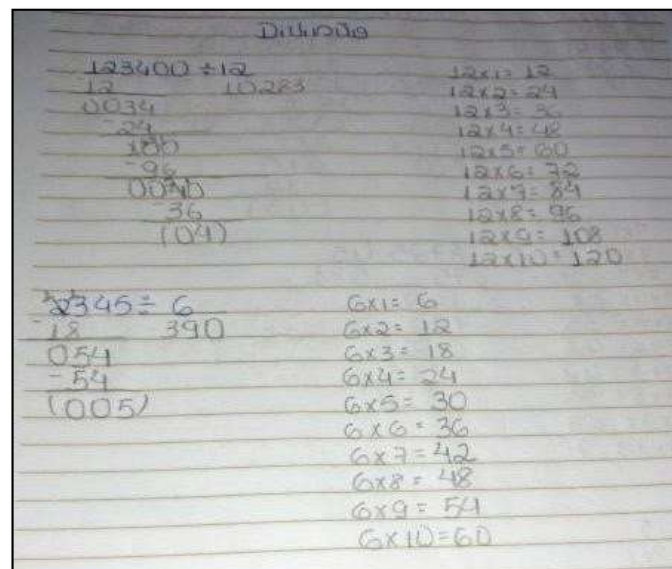 123400 ÷ 12
12 10283
0034
-24
100
-96
0040
-36
(04)
12x1= 12
12x2= 24
12x3= 36
12x4= 48
12x5= 60
12x6= 72
12x7= 84
12x8= 96
12x9= 108
12x10= 120
2345÷ 6
-18 390
054
-54
(005)
6x1= 6
6x2= 12
6x3= 18
6x4= 24
6x5= 30
6x6= 36
6x7= 42
6x8= 48
6x9= 54
6x10=60